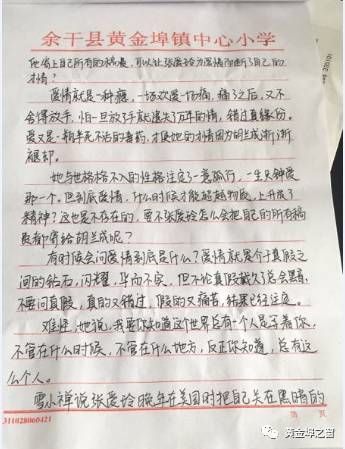 余干县黄金埠镇中心小学
他寄上自己所有的稿费,可以让张爱玲为爱情而断了自己的
才情?
爱情就是一种瘾,一场欢爱一场痛,痛了之后,又不
舍得放手,怕一旦放手就遗失了万年的情,错过真缘份。
爱又是一种半死不活的毒药,才使她的才情因为胡兰成渐渐
褪却。
她与世格格不入的性格注定了一意孤行,一生只钟爱
那一个。但到底爱情,什么时候才能超越物质,上升成了
精神?这也是不存在的,要不张爱玲怎么会把自己的所有稿
费都寄给胡兰成呢?
有时候会问爱情到底是什么?爱情就是介于真假之
间的钻石,闪耀,华而不实,但不论真假戴久了总会黑。
不要问真假,真的又错过,假的又痛苦,结果已经注定。
难怪,她说,我要你知道这个世界总有一个人是等着你,
不管在什么时候,不管在什么地方,反正你知道,总有这
么个人。
雪小禅说张爱玲晚年在美国时把自己关在黑暗的
311028060421
第 页
黄金埠之窗